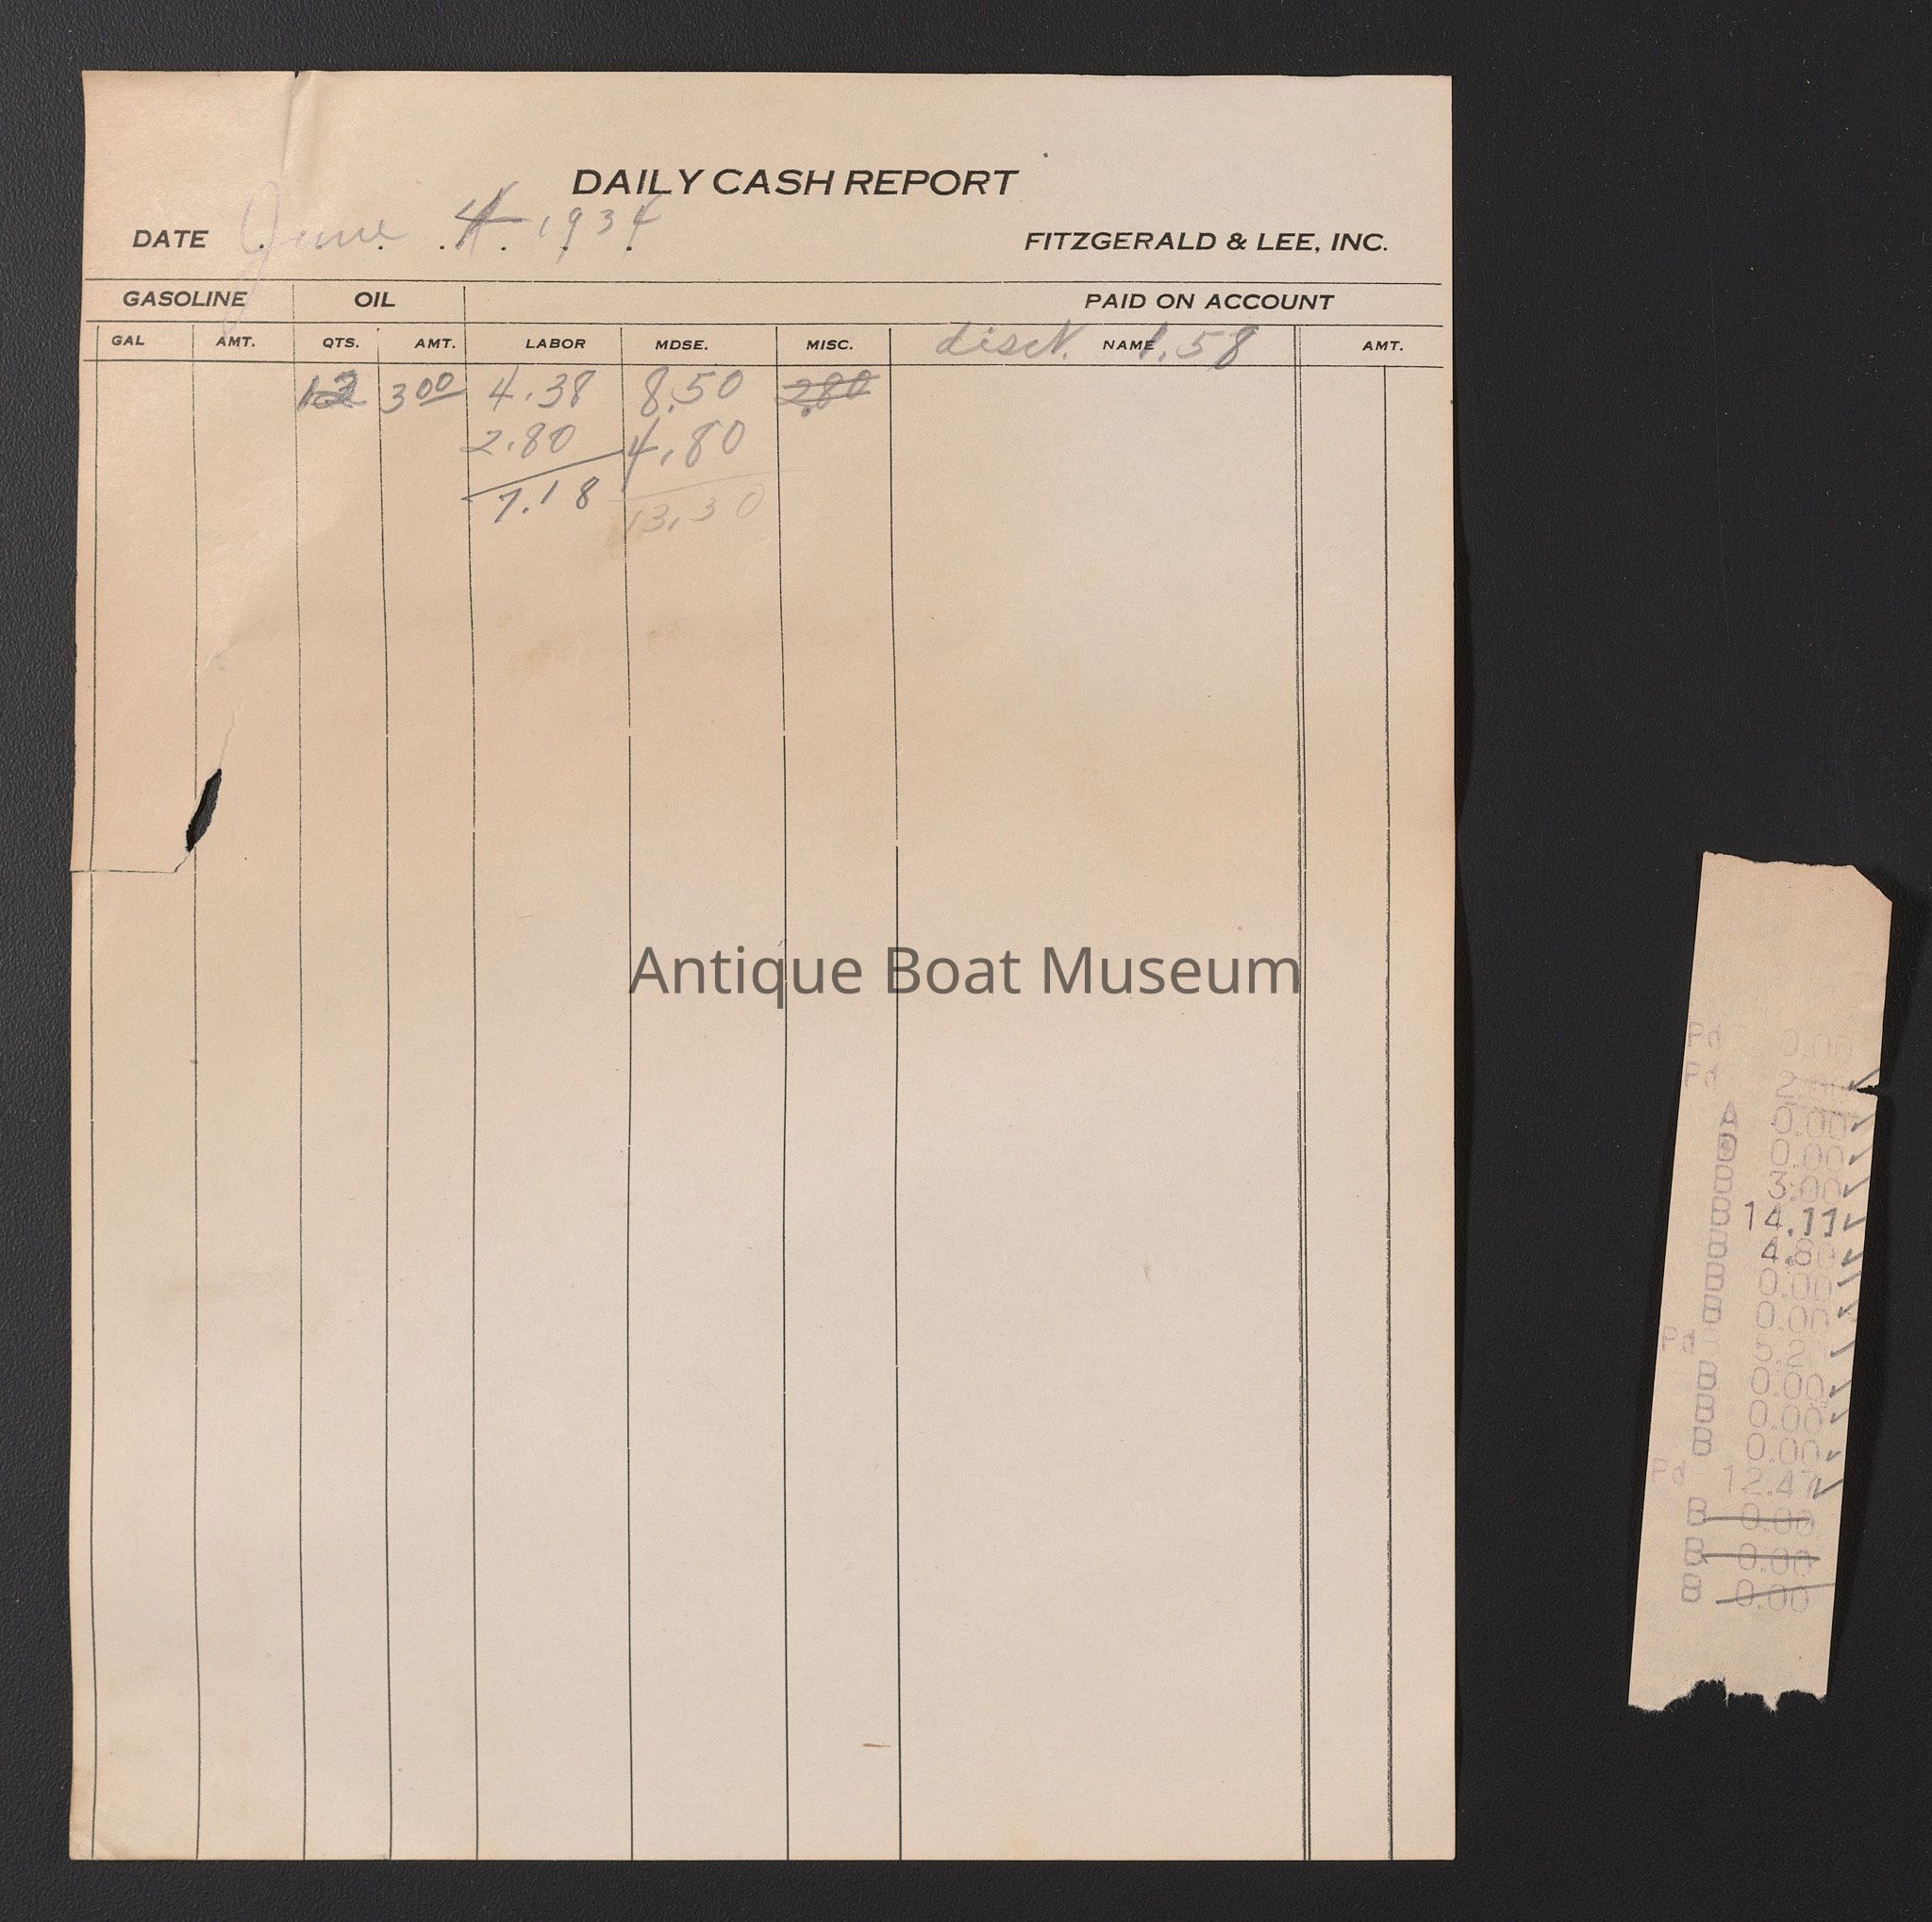 DAILY CASH REPORT
DATE June 4 1934 FITZGERALD & LEE, INC.
GASOLINE OIL PAID ON ACCOUNT
GAL AMT. QTS. AMT. LABOR MDSE. MISC. NAME AMT.
disct. 1.58
12 3 00 4.38 8.50 2.80
2.80 4.80
7.18 13.30
Antique Boat Museum
Pd 0.00
Pd 2.00 ✓
A 0.00 ✓
D 0.00 ✓
B 3.00 ✓
B 14.11 ✓
B 4.80 ✓
B 0.00 ✓
B 0.00 ✓
Pd ✓
B 0.00 ✓
B 0.00 ✓
B 0.00 ✓
Pd 12.47 ✓
B 0.00
B 0.00
B 0.00